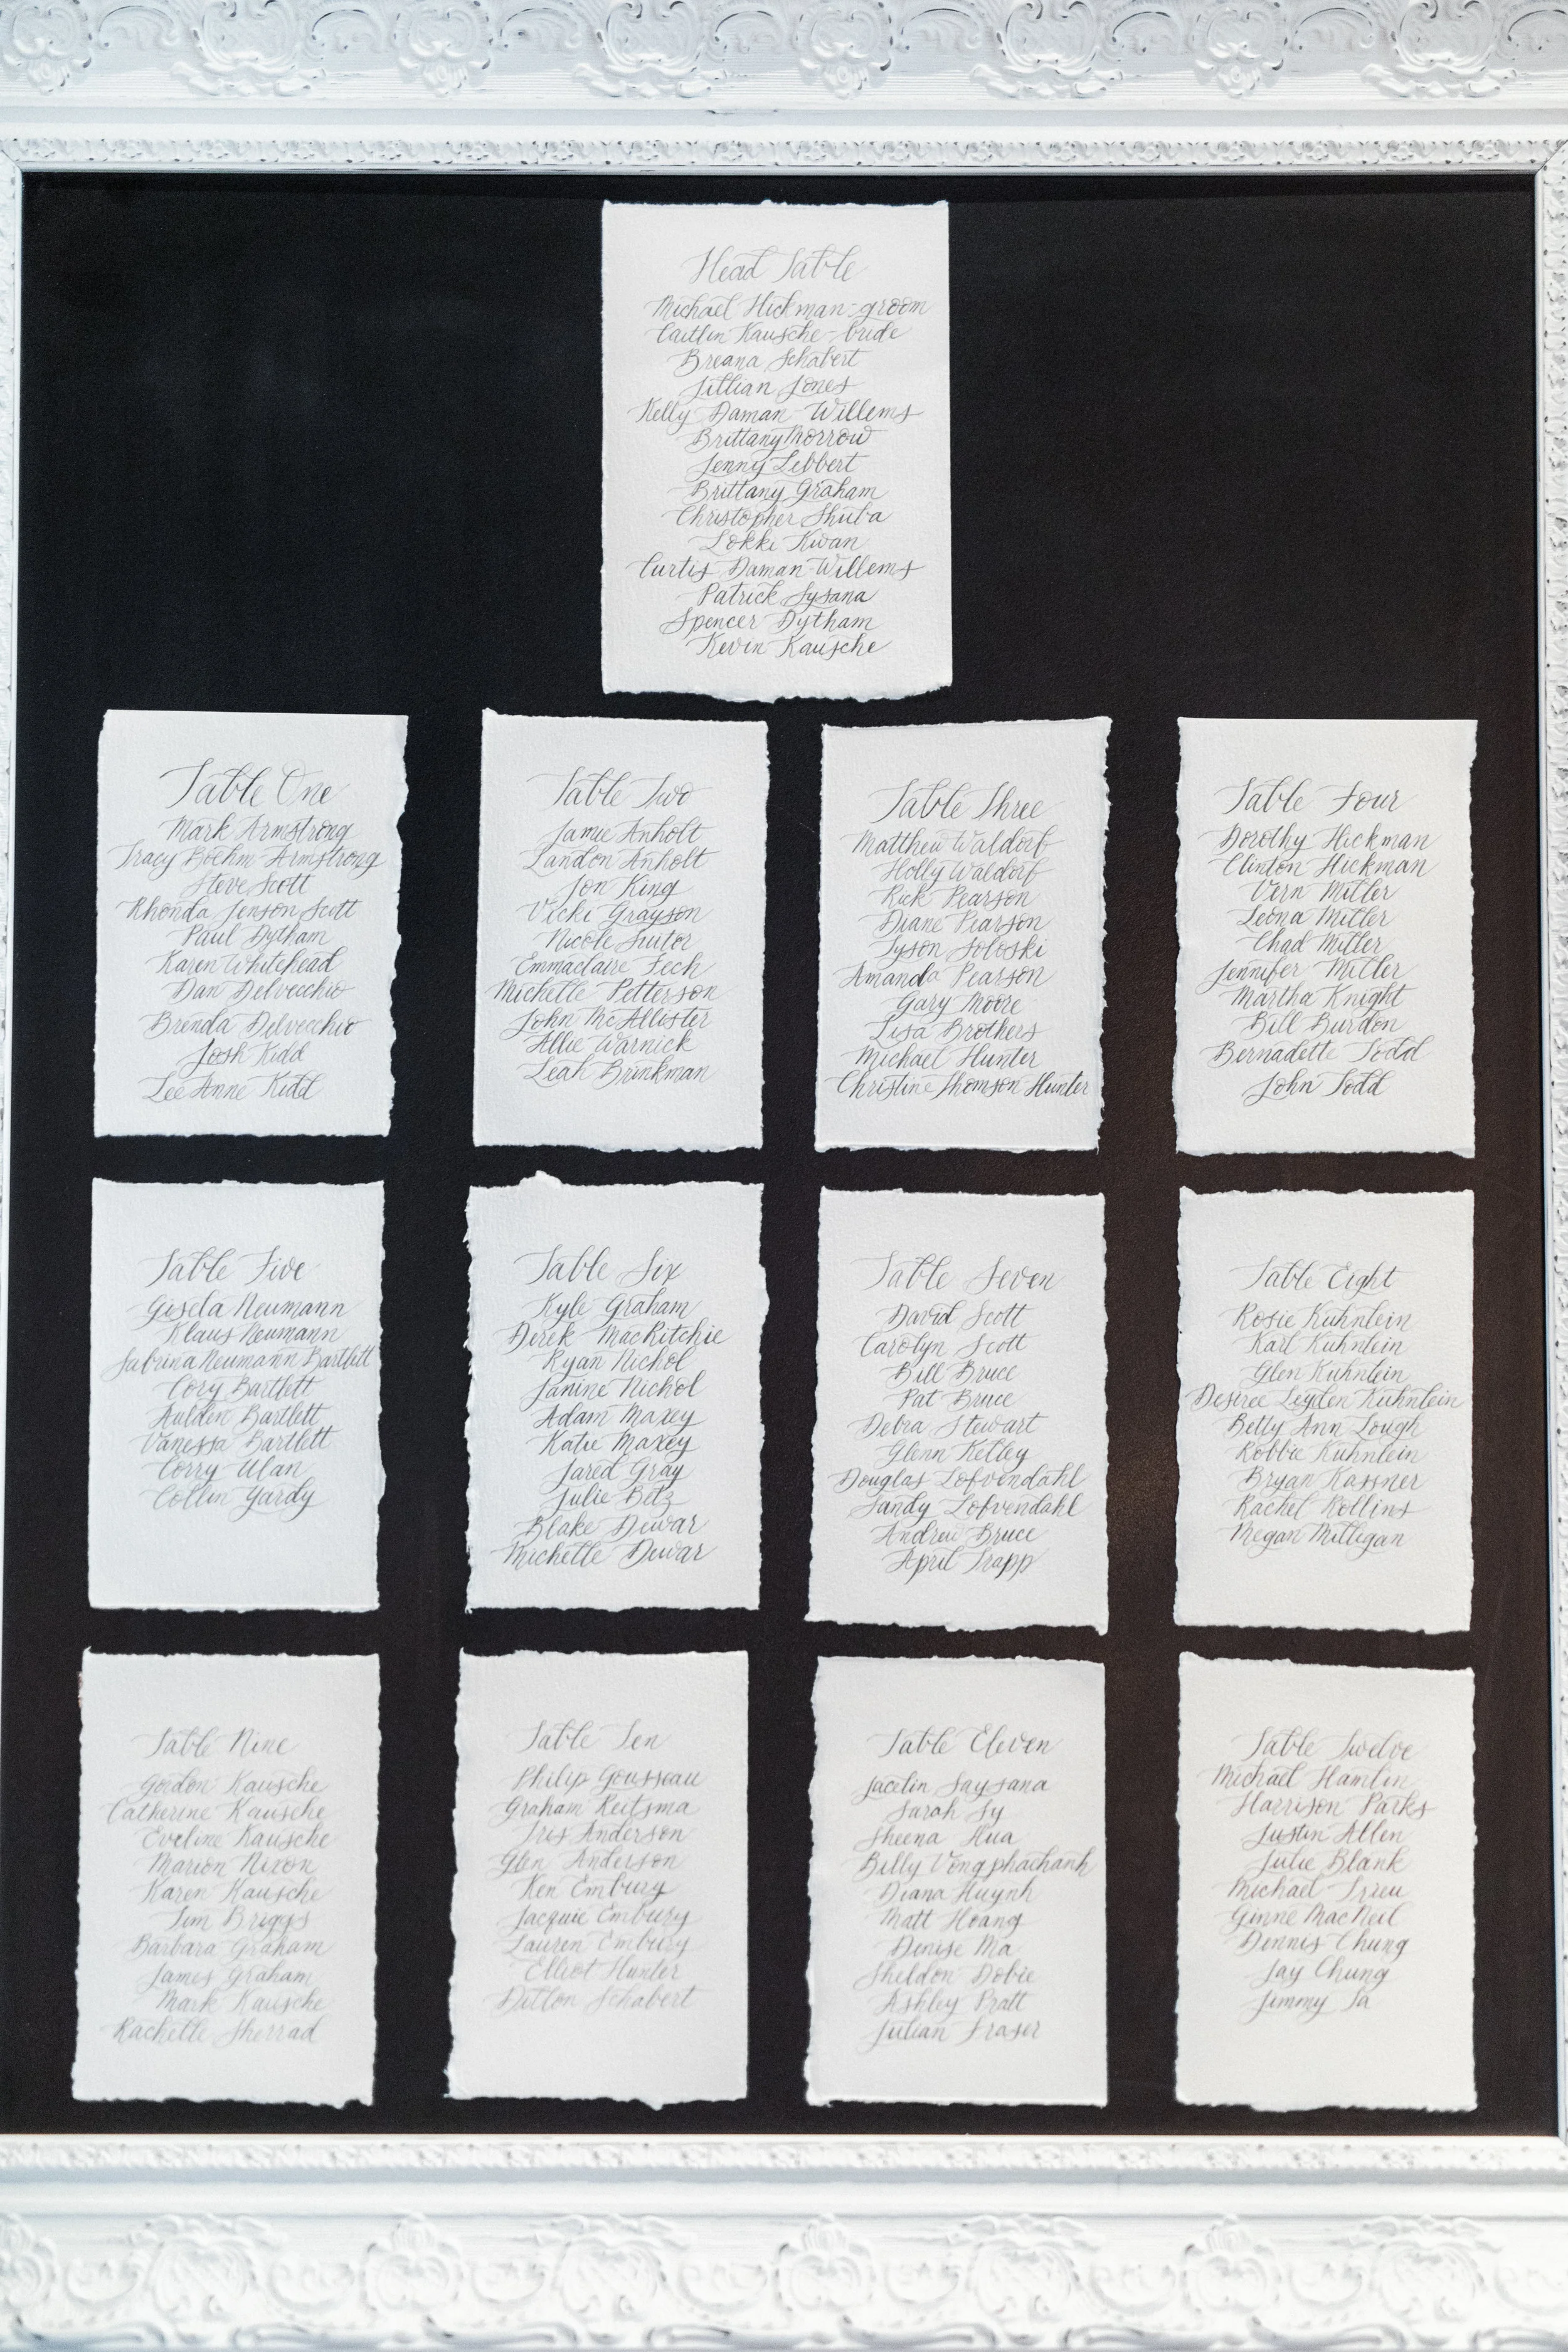 Head Table
Michael Hickman-groom
Caitlin Kausche-bride
Breana Schabert
Jillian Jones
Kelly Daman-Willems
Brittany Morrow
Jenny Lebbert
Brittany Graham
Christopher Shuba
Lokki Kwan
Curtis Daman-Willems
Patrick Sysana
Spencer Dytham
Kevin Kausche
Table One
Mark Armstrong
Tracy Boehm-Armstrong
Steve Scott
Rhonda Jenson Scott
Paul Dytham
Karen Whitehead
Dan Delvecchio
Brenda Delvecchio
Josh Kidd
Lee Anne Kidd
Table Two
Jamie Anholt
Landon Anholt
Jon King
Vicki Grayson
Nicole Suitor
Emmaclaire Fech
Michelle Petterson
John McAllister
Allie Warnick
Leah Brinkman
Table Three
Matthew Waldorf
Holly Waldorf
Rick Pearson
Diane Pearson
Tyson Soloski
Amanda Pearson
Gary Moore
Lisa Brothers
Michael Hunter
Christine Thomson Hunter
Table Four
Dorothy Hickman
Clinton Hickman
Vern Miller
Leona Miller
Chad Miller
Jennifer Miller
Martha Knight
Bill Burdon
Bernadette Todd
John Todd
Table Five
Gisela Neumann
Klaus Neumann
Sabrina Neumann Bartlett
Cory Bartlett
Aulden Bartlett
Vanessa Bartlett
Corry Ulan
Collin Yardy
Table Six
Kyle Graham
Derek MacRitchie
Ryan Nichol
Janine Nichol
Adam Maxey
Katie Maxey
Jared Gray
Julie Betz
Blake Dewar
Michelle Dewar
Table Seven
David Scott
Carolyn Scott
Bill Bruce
Pat Bruce
Debra Stewart
Glenn Kelley
Douglas Lofvendahl
Sandy Lofvendahl
Andrew Bruce
April Trapp
Table Eight
Rosie Kuhnlein
Karl Kuhnlein
Glen Kuhnlein
Desiree Leyden Kuhnlein
Betty Ann Lough
Robbie Kuhnlein
Bryan Kassner
Rachel Rollins
Megan Milligan
Table Nine
Gordon Kausche
Catherine Kausche
Eveline Kausche
Marion Nixon
Karen Kausche
Jim Briggs
Barbara Graham
James Graham
Mark Kausche
Rachelle Sherrad
Table Ten
Philip Gousseau
Graham Reitsma
Iris Anderson
Glen Anderson
Ken Embury
Jacquie Embury
Lauren Embury
Elliot Hunter
Dillon Schabert
Table Eleven
Jacelin Saysana
Sarah Sy
Sheena Hua
Billy Vongphachanh
Diana Huynh
Matt Hoang
Denise Ma
Sheldon Dobie
Ashley Pratt
Julian Fraser
Table Twelve
Michael Hamlin
Harrison Parks
Justin Allen
Julie Blank
Michael Trieu
Ginne MacNeil
Dennis Chung
Jay Chung
Jimmy Ta